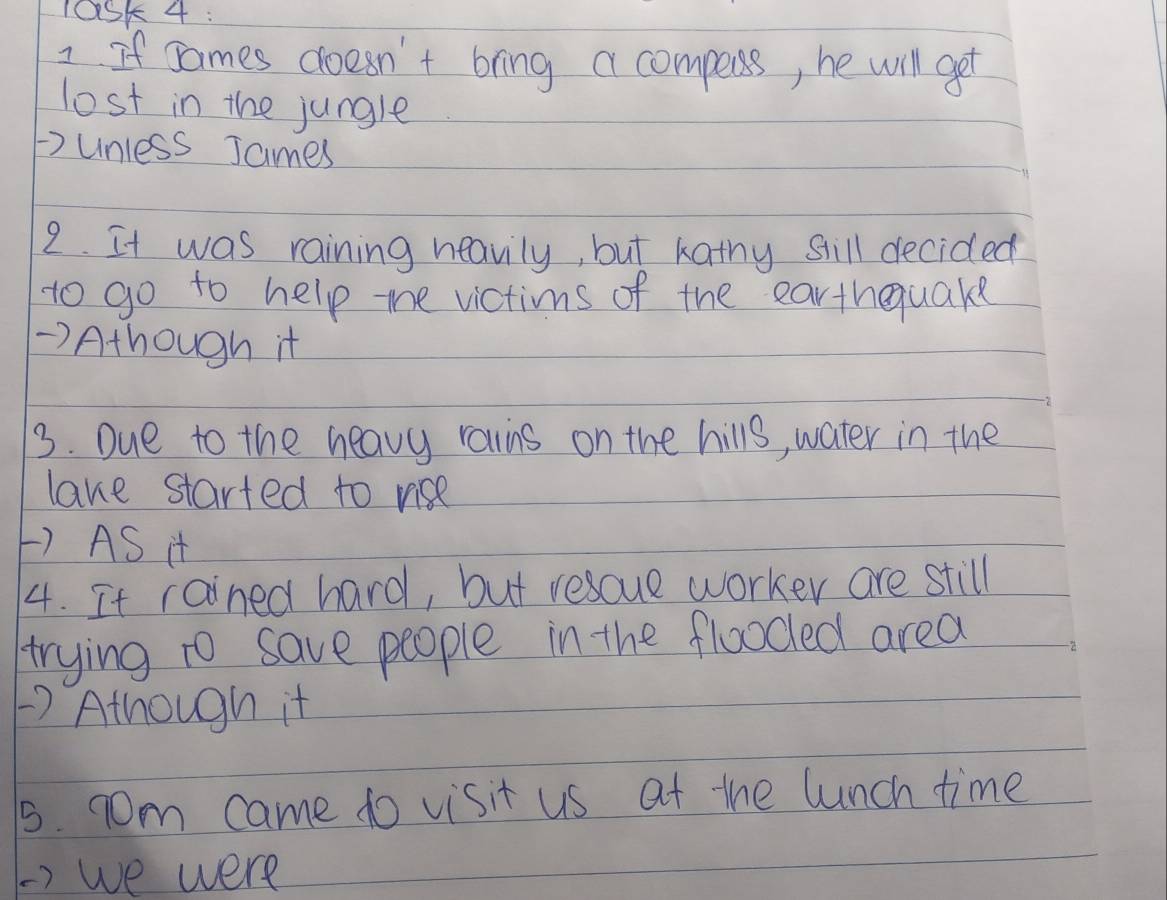 Task 4:
1. If James doesn't bring a compass, he will get
lost in the jungle.
-> Unless James
2. It was raining heavily, but Kathy still decided
to go to help the victims of the earthquake
-> Athough it
3. Due to the heavy rains on the hills, water in the
lake started to rise
-> As it
4. It rained hard, but rescue worker are still
trying to save people in the flooded area
-> Athough it
5. Tom came to visit us at the lunch time
-> We were